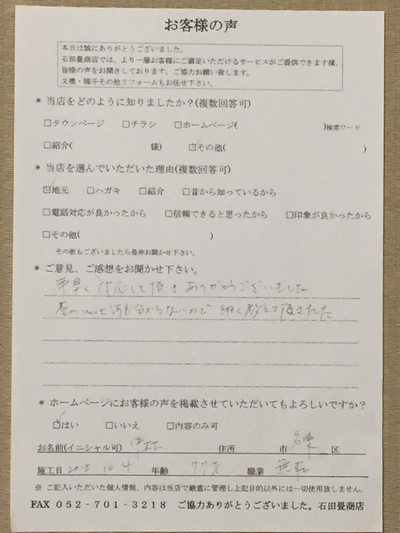 お客様の声
本日は誠にありがとうございました。
石田畳商店では、より一層お客様にご満足いただけるサービスがご提供できます様、
皆様の声をお聞きしております。ご協力お願い致します。
又襖・障子その他リフォームもお任せ下さい。
＊当店をどのように知りましたか？(複数回答可)
□タウンページ □チラシ □ホームページ( )検索ワード
□紹介( 様) ☑その他( )
＊当店を選んでいただいた理由(複数回答可)
☑地元 □ハガキ □紹介 □昔から知っているから
□電話対応が良かったから □信頼できると思ったから □印象が良かったから
□その他( )
その他もございましたら是非お聞かせ下さい。
＊ご意見、ご感想をお聞かせ下さい。
手早く対応して頂きありがとうございました
畳のついては何も分からないので 細く教えて頂きました
＊ホームページにお客様の声を掲載させていただいてもよろしいですか？
☑はい □いいえ □内容のみ可
お名前(イニシャル可) 住所 市 名東 区
施工日 2018 10 4 年齢 77才 職業 無職
※ ご記入いただいた個人情報、内容は当店で厳重に管理し上記目的以外には一切使用致しません。
FAX 052-701-3218 ご協力ありがとうございました。石田畳商店